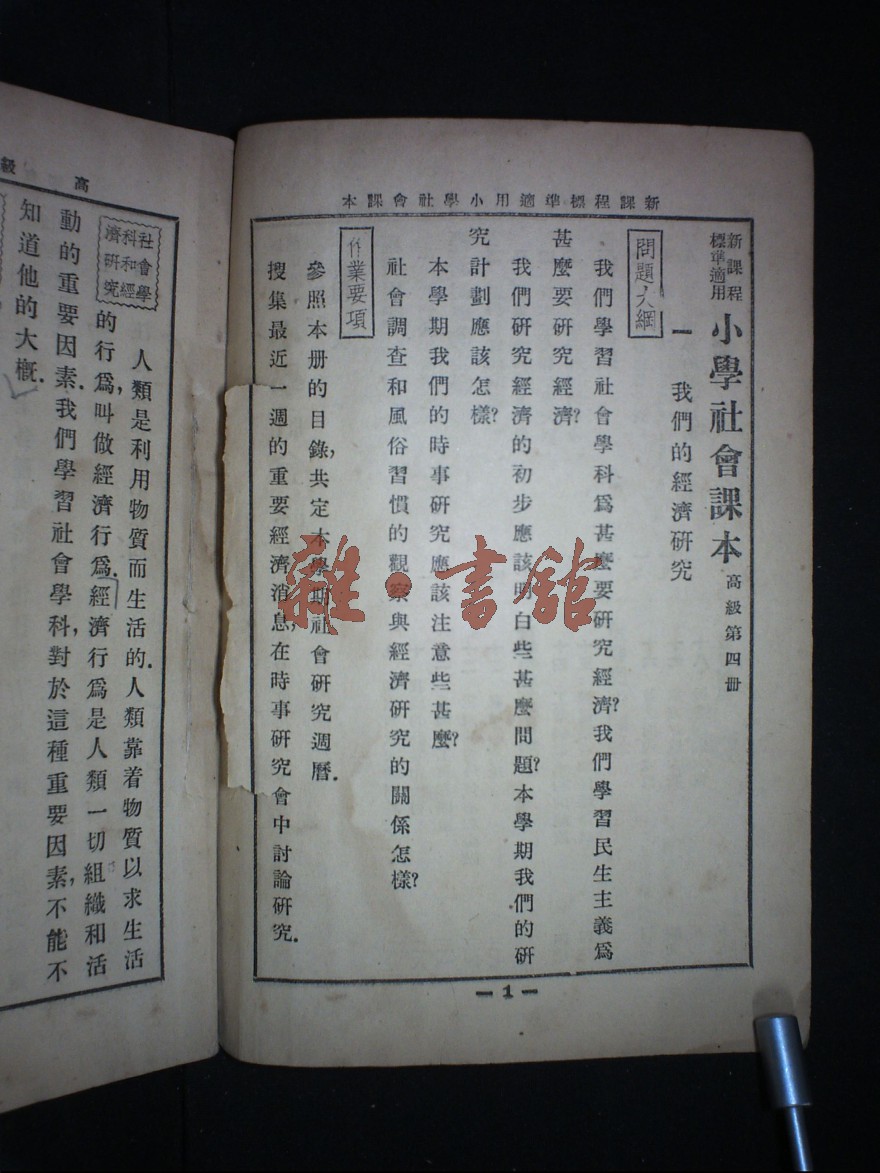 新課程標準適用小學社會課本
新課程
標準適用
小學社會課本 高級第四冊
一 我們的經濟研究
問題大綱
我們學習社會學科爲甚麼要研究經濟？我們學習民生主義爲
甚麼要研究經濟？
我們研究經濟的初步應該明白些甚麼問題？本學期我們的研
究計劃應該怎樣？
本學期我們的時事研究應該注意些甚麼？
社會調查和風俗習慣的觀察與經濟研究的關係怎樣？
作業要項
參照本册的目錄，共定本學期社會研究週曆．
搜集最近一週的重要經濟消息，在時事研究會中討論研究．
— 1 —
高級
社會學
科和經
濟研究
人類是利用物質而生活的．人類靠着物質以求生活
的行爲，叫做經濟行爲．經濟行爲是人類一切組織和活
動的重要因素．我們學習社會學科，對於這種重要因素，不能不
知道他的大概．
雜·書館